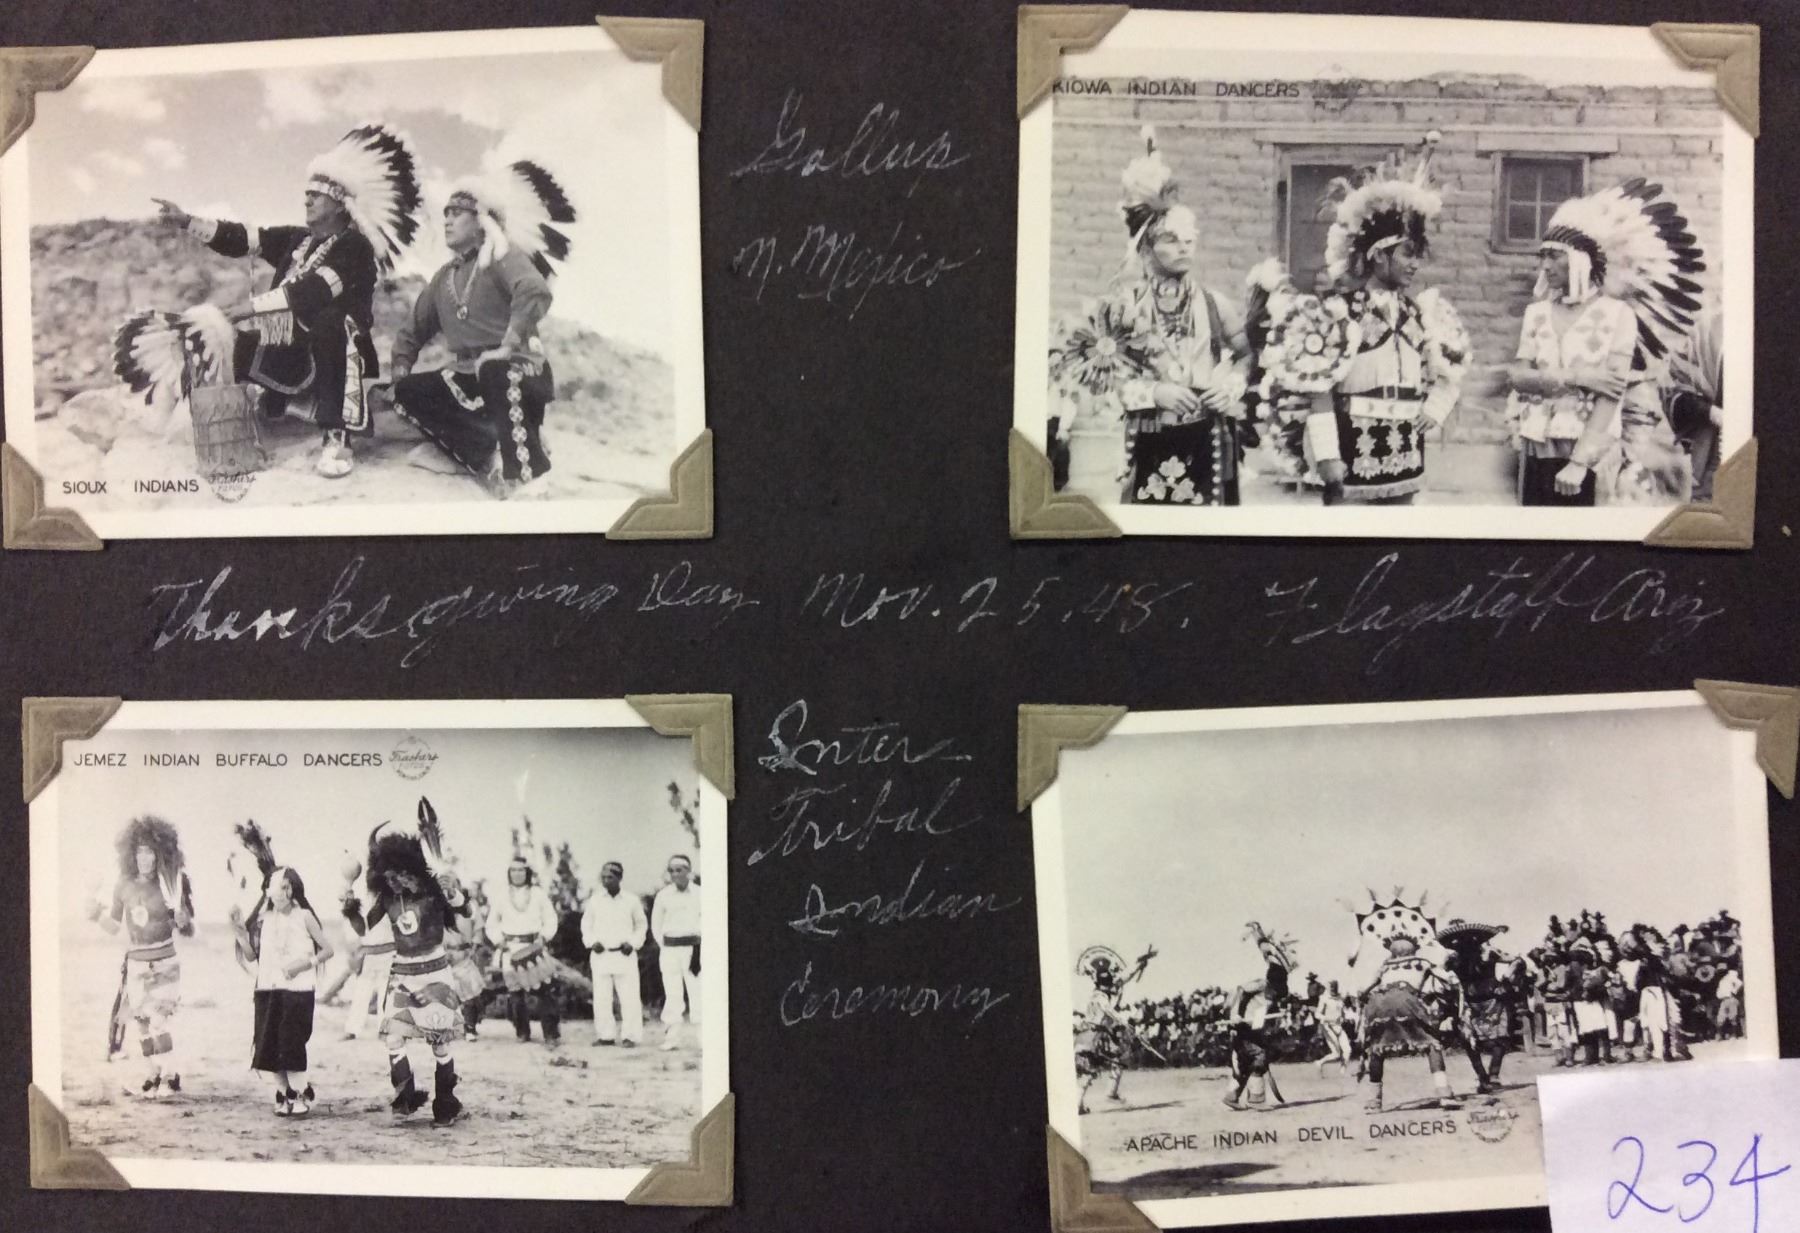 Gallup
N. Mexico
KIOWA INDIAN DANCERS
SIOUX INDIANS
Thanksgiving Day Nov. 25, 48. Flagstaff Ariz
JEMEZ INDIAN BUFFALO DANCERS Frashers FOTOS
Inter
Tribal
Indian
Ceremony
APACHE INDIAN DEVIL DANCERS Frashers FOTOS
234